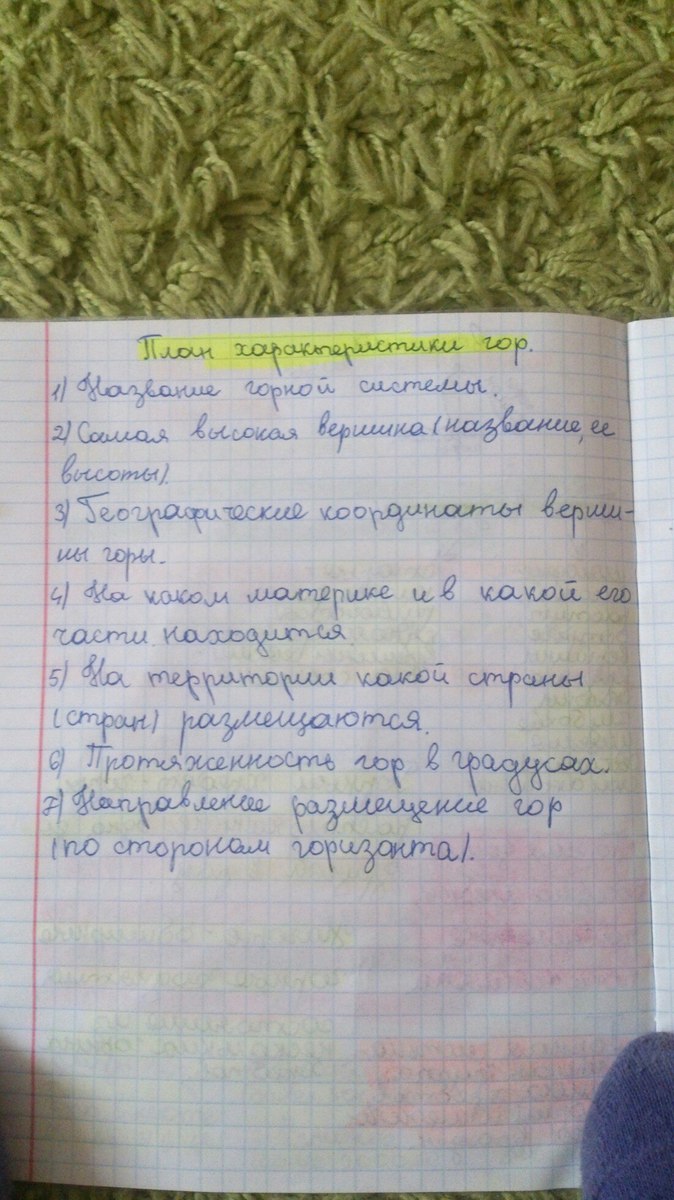 План характеристики гор.
1) Название горной системы.
2) Самая высокая вершина (название, ее
высоты).
3) Географические координаты верши-
ны горы.
4) На каком материке и в какой его
части находится.
5) На территории какой страны
(стран) размещаются.
6) Протяженность гор в градусах.
7) Направление размещение гор
(по сторонам горизонта).